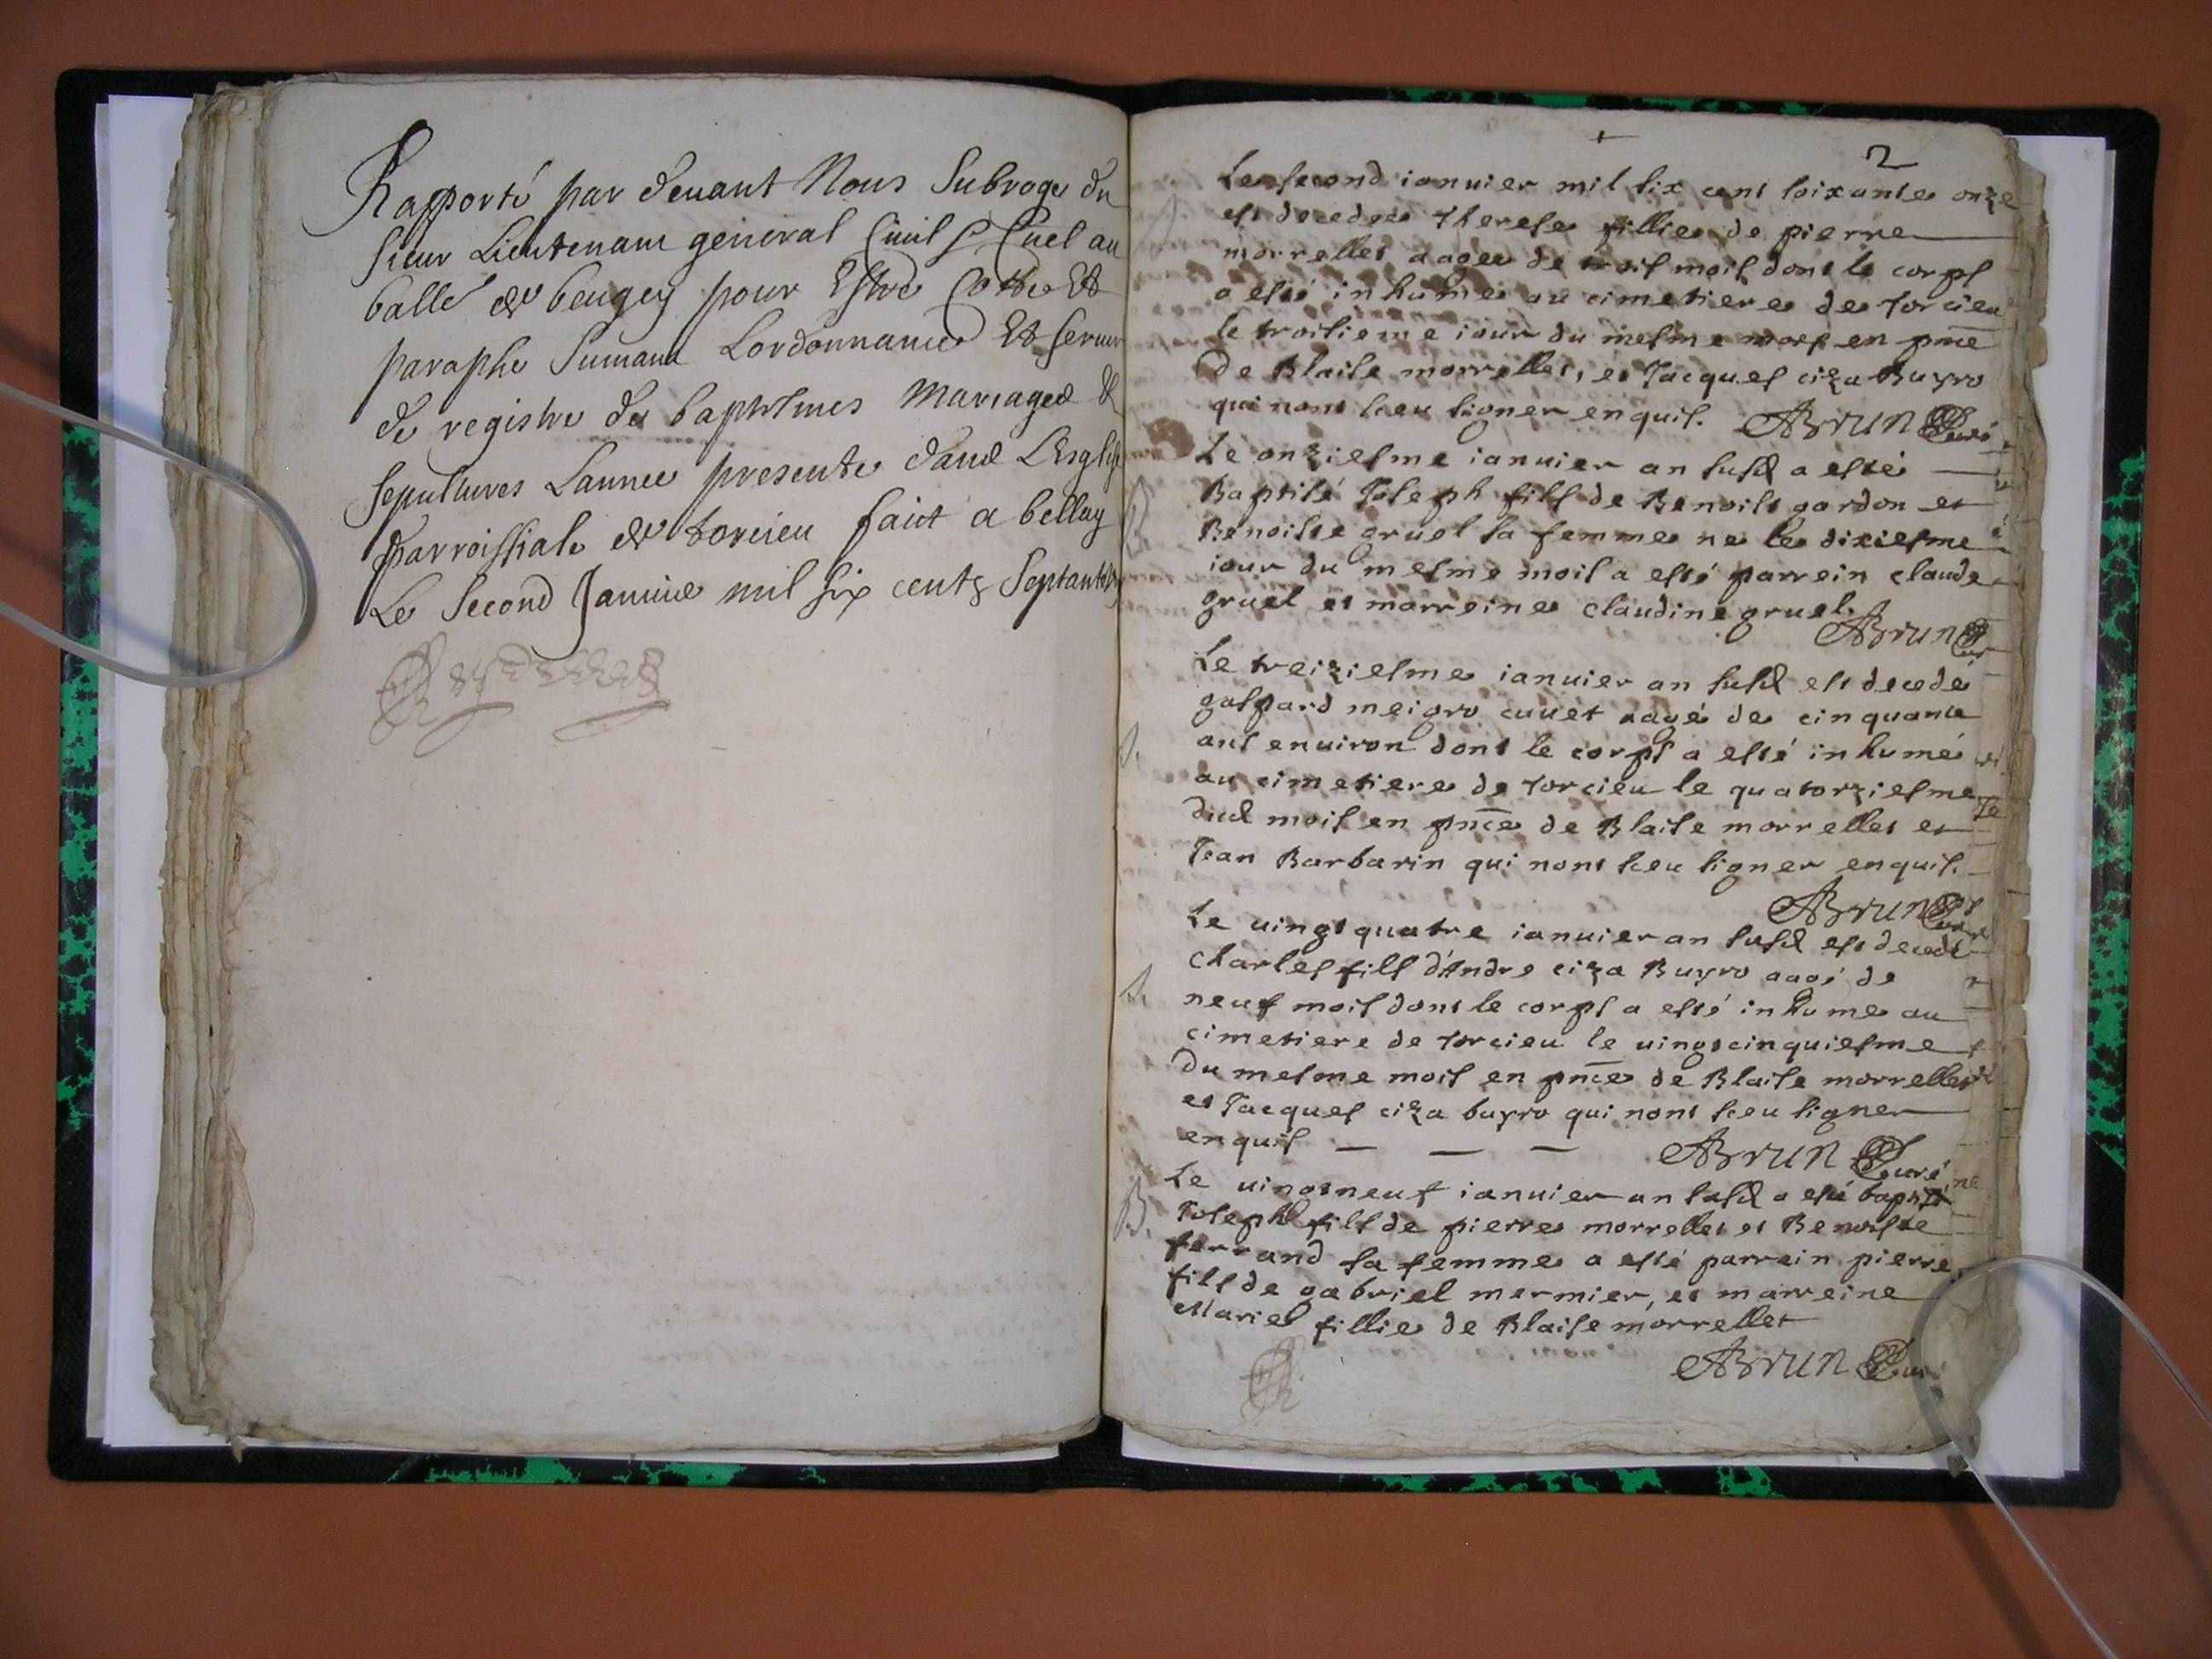 Rapporté par deuant Nous Subroge du
sieur Lieutenant general Ciuil & Cuel au
balle de beugey pour Estre Cotte Et
paraphe Suiuant Lordonnance Et seruir
de registre des baptesmes Mariages &
sepultures Lannee presente dans L'Esglise
parroissiale de torcieu faict a bellay
Le Second Januier mil six cents Septante
2
Le second ianuier mil six cent soixante onze
est decedee Therese fillie de pierre
morrellet aagee de trois mois dont le corps
a esté inhume au cimetiere de Torcieu
le troisieme iour du mesme moys en pnce
De Blaise morrellet, et Jacques ciza Buyro
qui nont sceu signer enquis. ABrun Curé
Le onziesme ianuier an susd a esté
B
Baptisé Joseph fils de Benoist gordon et
Benoiste gruel sa femme ne le dixiesme
iour du mesme mois a esté parrein claude
gruel et marreine claudine gruel.
ABrun Cur
Le treiziesme ianuier an susd est decede
gaspard meigro cuuet aagé de cinquante
S.
ans enuiron dont le corps a esté inhumé
au cimetiere de Torcieu le quatorziesme
dud mois en pnce de Blaise morrellet et
Jean Barbarin qui nont sceu signer enquis.
ABrun Curé
Le uingt quatre ianuier an susd est decede
charles fils d'Andre ciza Buyro aagé de
S.
neuf mois dont le corps a esté inhume au
cimetiere de Torcieu le uingt cinquiesme
du mesme mois en pnce de Blaise morrellet
et Jacques ciza buyro qui nont sceu signer
enquis — — — ABrun Curé
Le uingt neuf ianuier an susd a esté baptisé
B.
Joseph fils de pierre morrellet et Benoiste
ferrand sa femme a esté parrein pierre
fils de gabriel mermier, et marreine
Marie fillie de Blaise morrellet
ABrun Curé